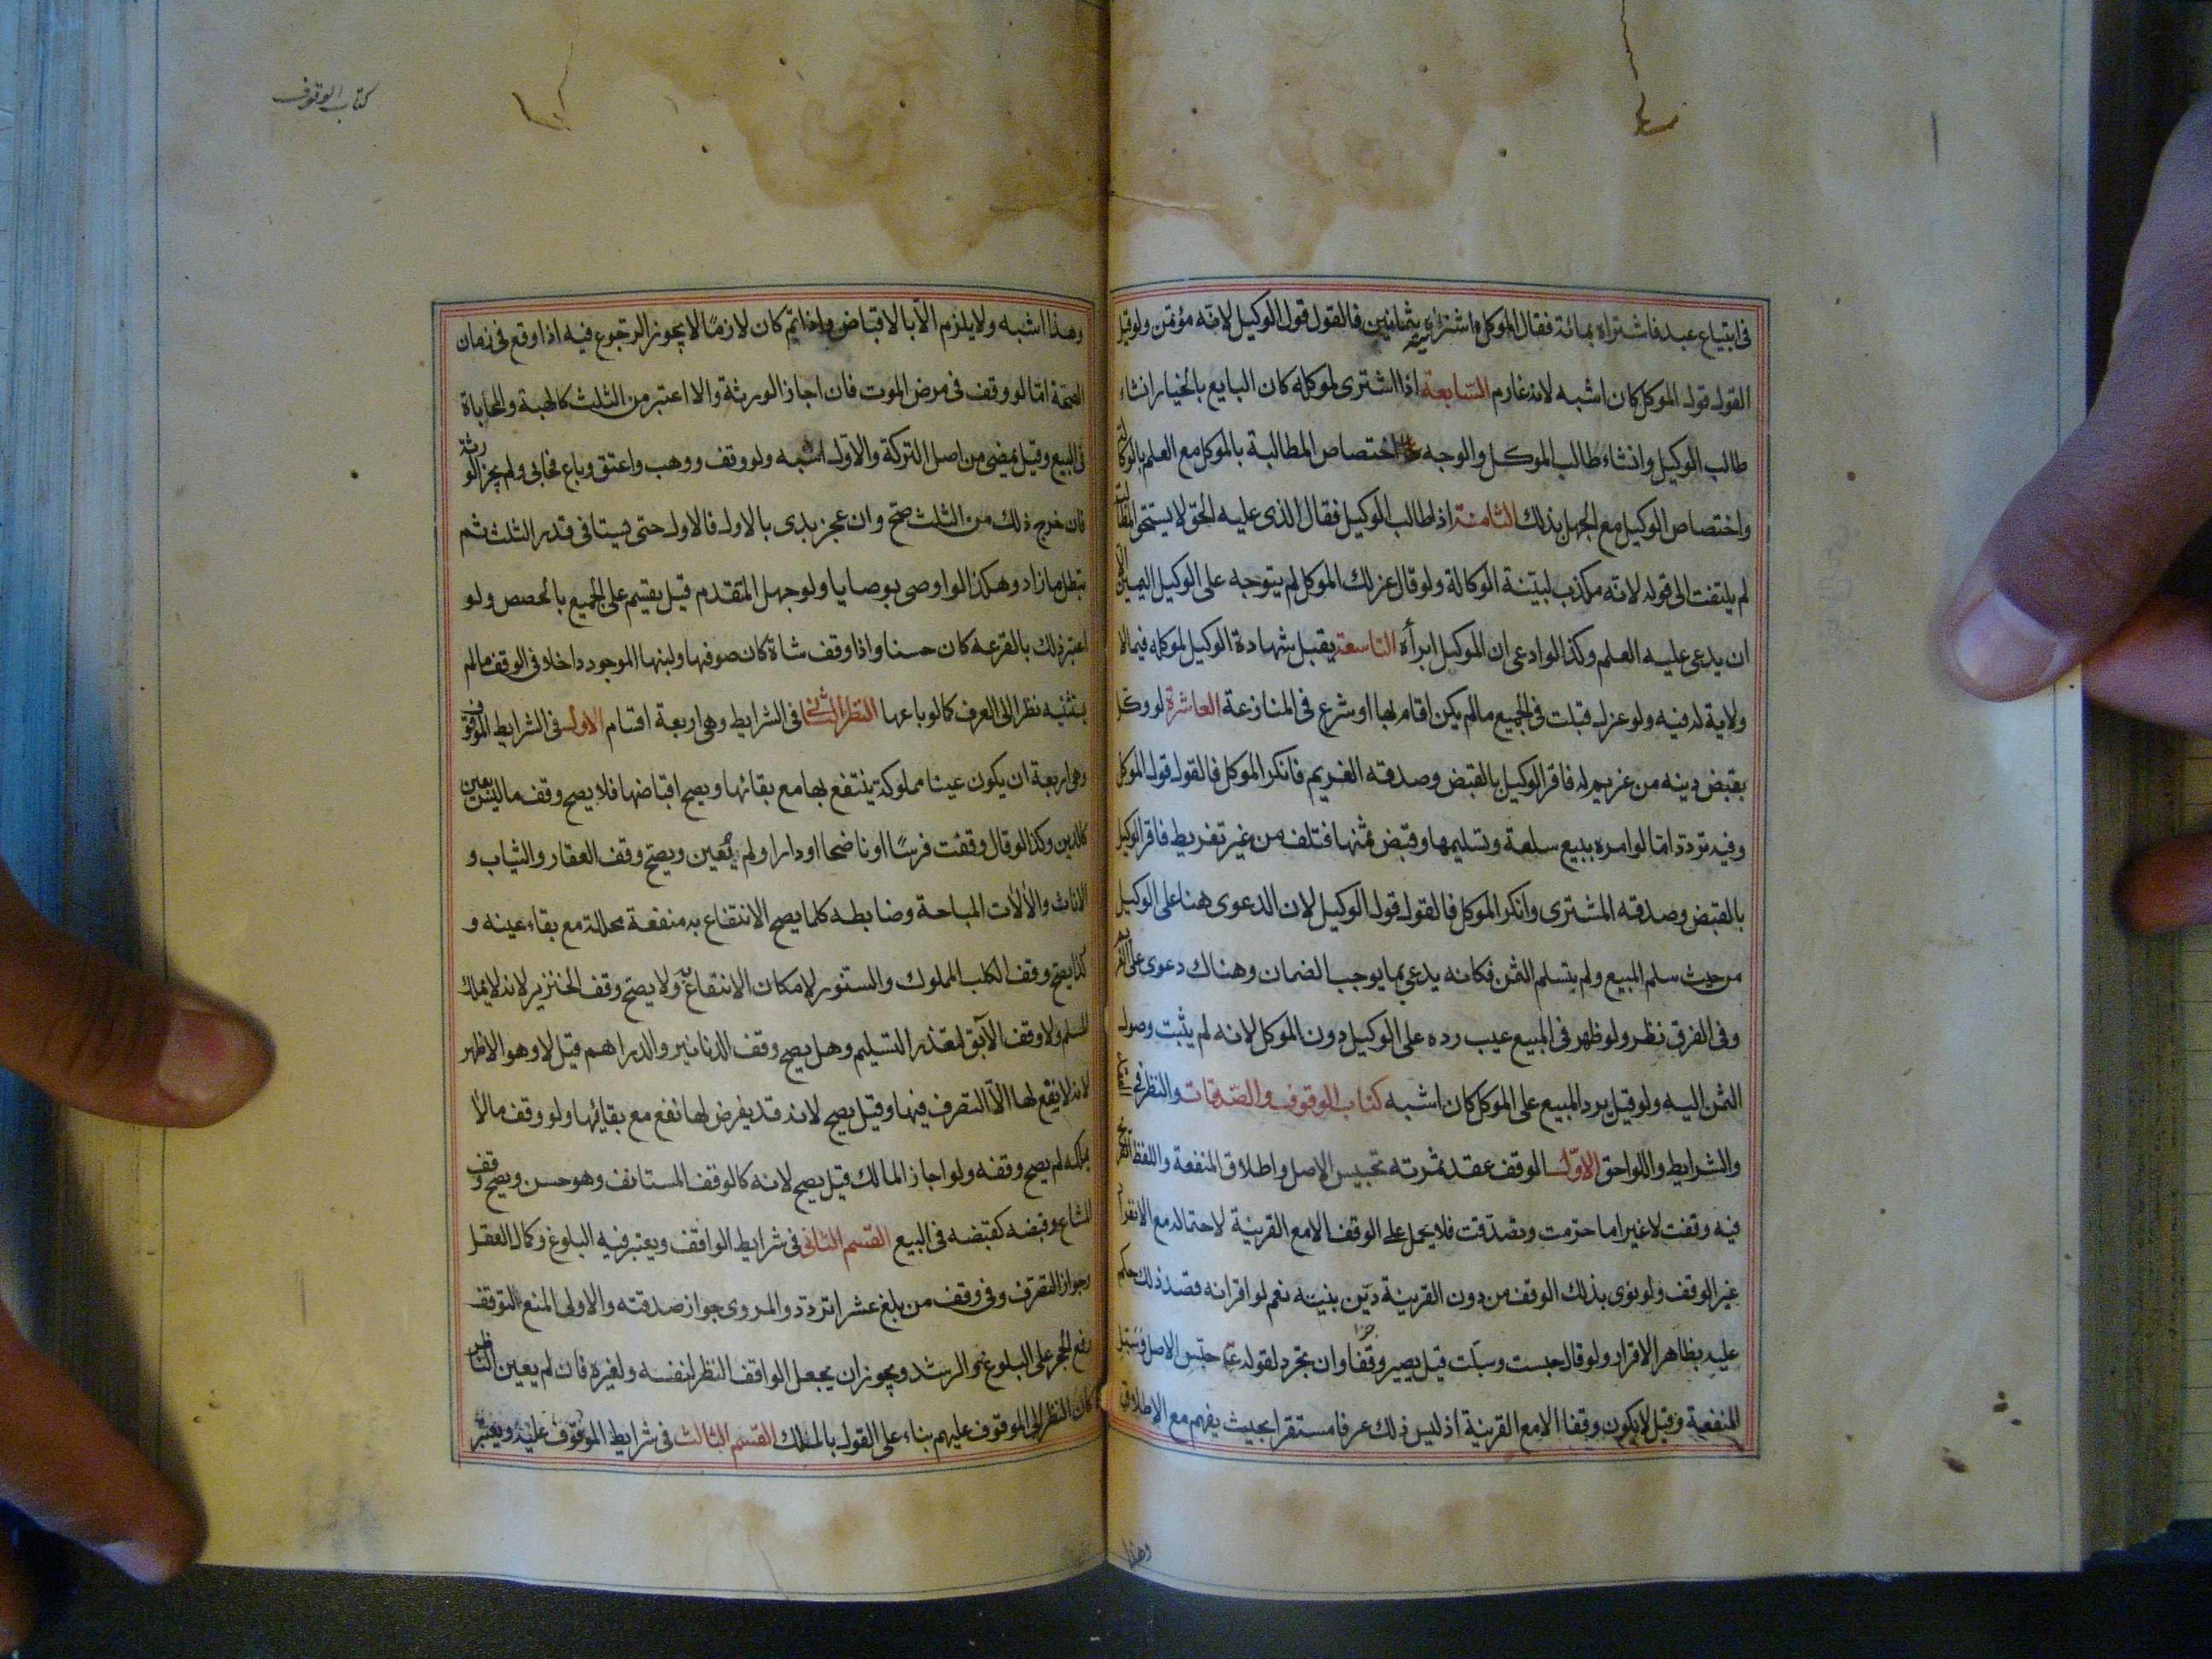 في ابتياع عبد فاشتراه بمائة فقال الموكل اشتريته بثمانين فالقول قول الوكيل لانه مؤتمن ولو قيل
القول قول الموكل كان اشبه لانه غارم السابعة اذا اشترى لموكله كان البايع بالخيار ان شاء
طالب الوكيل وان شاء طالب الموكل والوجه اختصاص المطالبة بالموكل مع العلم بالوكالة
واختصاص الوكيل مع الجهل بذلك الثامنة اذا طالب الوكيل فقال الذى عليه الحق لا يستحق المطالبة
لم يلتفت الى قوله لانه مكذب لبينة الوكالة ولو قال عزلك الموكل لم يتوجه على الوكيل اليمين الا
ان يدعى عليه العلم وكذا لو ادعى ان الموكل ابرأه التاسعة يقبل شهادة الوكيل لموكله فيما لا
ولاية له فيه ولو عزل قبلت في الجميع ما لم يكن اقام بها او شرع في المنازعة العاشرة لو وكل
بقبض دينه من غريم له فاقر الوكيل بالقبض وصدقه الغريم فانكر الموكل فالقول قول الموكل
وفيه تردد اما لو امره ببيع سلعة وتسليمها وقبض ثمنها فتلف من غير تفريط فاقر الوكيل
بالقبض وصدقه المشترى وانكر الموكل فالقول قول الوكيل لان الدعوى هنا على الوكيل
من حيث سلم المبيع ولم يتسلم الثمن فكانه يدعى بما يوجب الضمان وهناك دعوى على الغريم
وفي الفرق نظر ولو ظهر في المبيع عيب رده على الوكيل دون الموكل لانه لم يثبت وصول
الثمن اليه ولو قيل برد المبيع على الموكل كان اشبه كتاب الوقوف والصدقات والنظر في العقد
والشرايط واللواحق الاول الوقف عقد ثمرته تحبيس الاصل واطلاق المنفعة واللفظ الصريح
فيه وقفت لا غير اما حرمت وتصدقت فلا يحمل على الوقف الا مع القرينة لاحتماله مع الانفراد
غير الوقف ولو نوى بذلك الوقف من دون القرينة دين بنيته نعم لو اقر انه قصد ذلك حكم
عليه بظاهر الاقرار ولو قال حبست وسبلت قيل يصير وقفا وان تجرد لقوله ع حبس الاصل وسبل
المنفعة وقيل لا يكون وقفا الا مع القرينة اذ ليس ذلك عرفا مستقرا بحيث يفهم مع الاطلاق
وهذا
كتاب الوقوف
وهذا اشبه ولا يلزم الا بالاقباض واذا تم كان لازما لا يجوز الرجوع فيه اذا وقع في زمان
الصحة اما لو وقف في مرض الموت فان اجاز الورثة والا اعتبر من الثلث كالهبة والمحاباة
في البيع وقيل يمضى من اصل التركة والاول اشبه ولو وقف ووهب واعتق وباع فحابى ولم يجز الورثة
فان خرج ذلك من الثلث صح وان عجز بدى بالاول فالاول حتى يستافى قدر الثلث ثم
يبطل ما زاد وهكذا لو اوصى بوصايا ولو جهل المتقدم قيل يقسم على الجميع بالحصص ولو
اعتبر ذلك بالقرعه كان حسنا واذا وقف شاة كان صوفها ولبنها الموجود داخلا في الوقف ما لم
يستثنيه نظرا الى العرف كما لو باعها النظر الثاني في الشرايط وهي اربعة اقسام الاول في الشرايط الموقوف
وهي اربعة ان يكون عينا مملوكة ينتفع بها مع بقائها ويصح اقباضها فلا يصح وقف ما ليس بعين
كالدين وكذا لو قال وقفت فرسا او ناضحا او دارا ولم يعين ويصح وقف العقار والثياب و
الاثاث والالات المباحة وضابطه كلما يصح الانتفاع به منفعة محللة مع بقاء عينه و
كذا يصح وقف الكلب المملوك والسنور لامكان الانتفاع به ولا يصح وقف الخنزير لانه لا يملك
للمسلم ولا وقف الآبق لتعذر التسليم وهل يصح وقف الدنانير والدراهم قيل لا وهو الاظهر
لانه لا نفع لها الا التصرف فيها وقيل يصح لانه قد يفرض لها نفع مع بقائها ولو وقف ما لا
يملكه لم يصح وقفه ولو اجاز المالك قيل يصح لانه كالوقف المستانف وهو حسن ويصح وقف
المشاع وقبضه كقبضه في البيع القسم الثاني في شرايط الواقف ويعتبر فيه البلوغ وكمال العقل
وجواز التصرف وفي وقف من بلغ عشرا تردد والمروى جواز صدقته والاولى المنع لتوقف
رفع الحجر على البلوغ والرشد ويجوز ان يجعل الواقف النظر لنفسه ولغيره فان لم يعين الناظر
كان النظر الى الموقوف عليهم بناء على القول بالملك القسم الثالث في شرايط الموقوف عليه ويعتبر